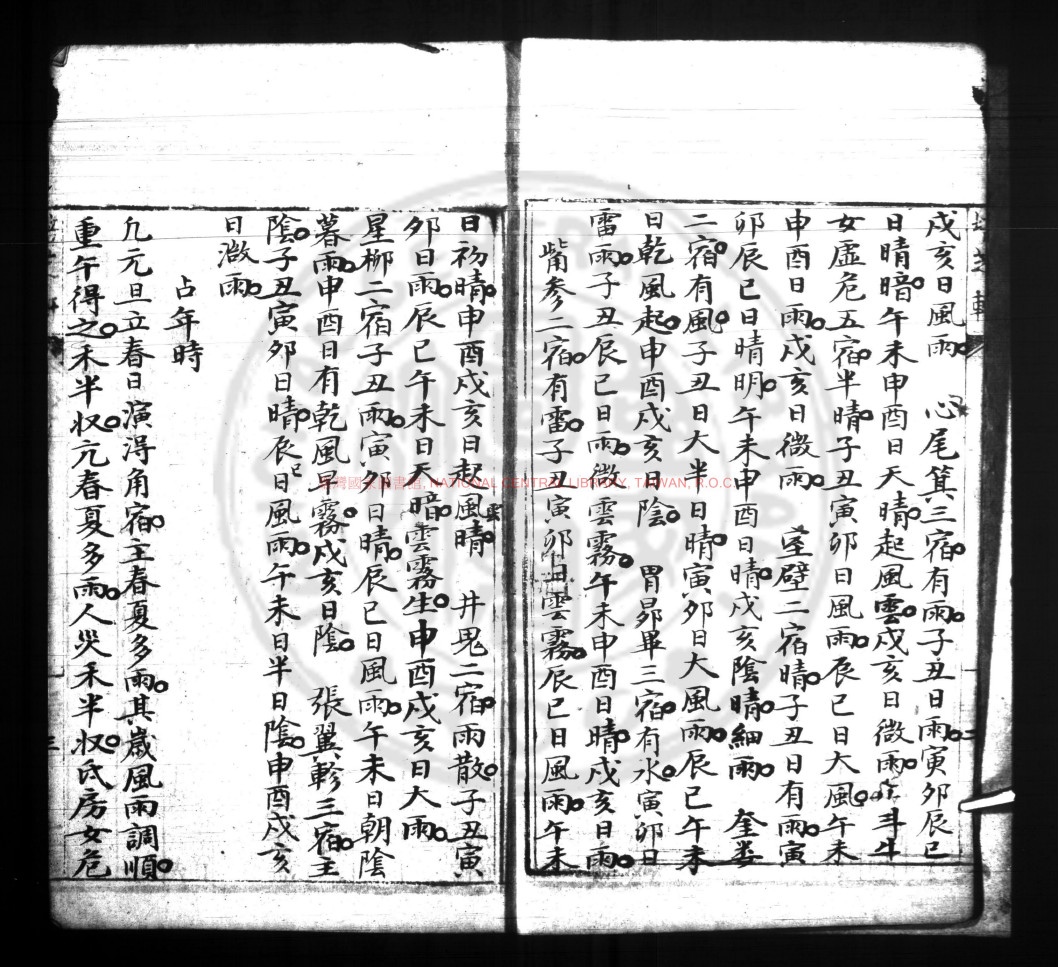 戍亥日風雨。 心尾箕三宿有雨。子丑日雨。寅夘辰巳
日晴暗。午未申酉日天晴。起風雲。戍亥日微雨。 斗牛
女虛危五宿半晴。子丑寅卯日風雨。辰巳日大風。午未
申酉日雨。戍亥日微雨。 室壁二宿晴。子丑日有雨。寅
卯辰巳日晴明。午未申酉日晴。戍亥陰晴細雨。 奎婁
二宿有風。子丑日大半日晴。寅夘日大風雨。辰巳午未
日乾風起。申酉戍亥日陰。 胃昴畢三宿。有氷。寅卯日
雷雨。子丑辰巳日雨。微雲霧。午未申酉日晴。戍亥日雨。
觜參二宿。有雷。子丑寅卯日雲霧。辰巳日風雨。午未
日初晴。申酉戍亥日起風雲晴 井鬼二宿。雨散。子丑寅
夘日雨。辰巳午未日天暗。雲霧生。申酉戍亥日大雨。
星柳二宿子丑雨。寅夘日晴。辰巳日風雨。午未日朝陰
暮雨。申酉日有乾風旱霧。戍亥日陰。 張翼軫三宿。主
陰。子丑寅夘日晴。辰巳日風雨。午未日半日陰。申酉戍亥
日溦雨。
占年時
凢元旦立春日演得角宿。主春夏多雨。其歲風雨調順。
重午得之。禾半収。亢春夏多雨。人災禾半収。氐房女危
臺灣國家圖書館, NATIONAL CENTRAL LIBRARY, TAIWAN, R.O.C